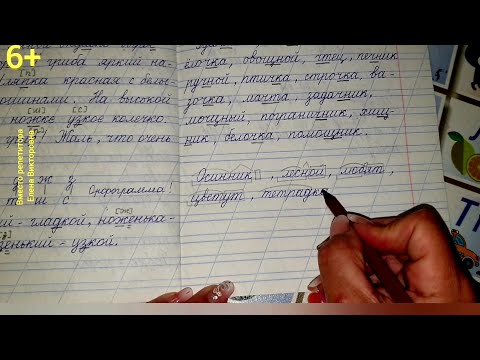 6+
Вместо репетитора
Елена Викторовна
[п]
шляпка красная с белы-
[ш] [с]
ми. На высокой
ножке узкое колечко.
Жаль, что очень
ж з
ш с Орфограмма!
[ж]
гладкой, ноженька-
узкой.
ёлочка, овощной, чтец, печник
ручной, птичка, строчка, ва-
зочка, мачта, задачник,
мощный, пограничник, ящ-
ник, белочка, помощник.
Осинник, лесной, любят,
цветут, тетрадке